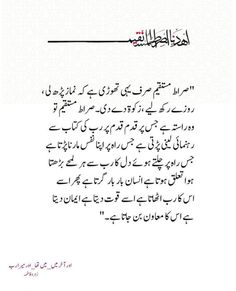 اهدنا الصراط المستقیم
"صراط مستقیم صرف یہی تھوڑی ہے کہ نماز پڑھ لی،
روزے رکھ لیے، زکوۃ دے دی۔ صراط مستقیم تو
وہ راستہ ہے جس پر قدم قدم پر رب کی کتاب سے
رہنمائی لینی پڑتی ہے جس راہ پر اپنا نفس مارنا پڑتا ہے
جس راہ پر چلتے ہوئے دل کا رب سے ہر لمحے بڑھتا
ہوا تعلق ہوتا ہے انسان بار بار گرتا ہے پھر اسے
اس کا رب اٹھاتا ہے اسے قوت دیتا ہے ایمان دیتا
ہے اس کا معاون بن جاتا ہے۔"
اور آخر میں_میں تھا_اور میرا رب